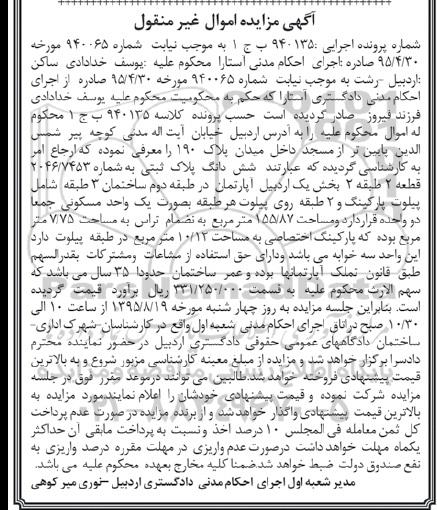 آگهی مزایده اموال غیر منقول
شماره پرونده اجرایی :۹۴۰۱۳۵ ب ج ۱ به موجب نیابت شماره ۹۴۰۰۶۵ مورخه
۹۵/۴/۳۰ صادره :اجرای احکام مدنی آستارا محکوم علیه :یوسف خدادادی ساکن
:اردبیل –رشت به موجب نیابت شماره ۹۴۰۰۶۵ مورخه ۹۵/۴/۳۰ صادره از اجرای
احکام مدنی دادگستری آستارا که حکم به محکومیت محکوم علیه یوسف خدادادی
فرزند فیروز صادر گردیده است حسب پرونده کلاسه ۹۴۰۱۳۵ ب ج ۱ محکوم
له اموال محکوم علیه را به آدرس اردبیل خیابان آیت اله مدنی کوچه پیر شمس
الدین پایین تر از مسجد داخل میدان پلاک ۱۹۰ را معرفی نموده که ارجاع امر
به کارشناسی گردیده که عبارتند شش دانگ پلاک ثبتی به شماره ۲۰۴۶/۷۴۵۳
قطعه ۲ طبقه ۲ بخش یک اردبیل آپارتمان در طبقه دوم ساختمان ۳ طبقه شامل
پیلوت پارکینگ و ۲ طبقه روی پیلوت هر طبقه بصورت یک واحد مسکونی جمعا
دو وحده قراردارد ومساحت ۱۵۵/۸۷ متر مربع به نضمام تراس به مساحت ۷/۷۵ متر
مربع بوده که پارکینگ اختصاصی به مساحت ۱۰/۱۲ متر مربع در طبقه پیلوت دارد
این واحد سه خوابه می باشد ودارای حق استفاده از مشاعات ومشترکات بقدرالسهم
طبق قانون تملک آپارتمانها بوده و عمر ساختمان حدودا ۳۵ سال می باشد که
سهم الارث محکوم علیه به قسمت ۳۳۱/۲۵۰/۰۰۰ ریال برآورد قیمت گردیده
است. بنابراین جلسه مزایده به روز چهار شنبه مورخه ۱۳۹۵/۸/۱۹ از ساعت ۱۰ الی
۱۰/۳۰ صبح دراتاق اجرای احکام مدنی شعبه اول واقع در کارشناسان–شهرک اداری–
ساختمان دادگاههای عمومی حقوقی دادگستری اردبیل در حضور نماینده محترم
دادسرا برگزار خواهد شد و مزایده از مبلغ معینه کارشناسی مزبور شروع و به بالاترین
قیمت پیشنهادی فروخته خواهد شد.طالبین می توانند درموعد مقرر فوق در جلسه
مزایده شرکت نموده و قیمت پیشنهادی خودشان را اعلام نمایند.مورد مزایده به
بالاترین قیمت پیشنهادی واگذار خواهد شد و از برنده مزایده در صورت عدم پرداخت
کل ثمن معامله فی المجلس ۱۰ درصد اخذ و نسبت به پرداخت مابقی آن حداکثر
یکماه مهلت خواهد داشت درصورت عدم واریزی در مهلت مقرره درصد واریزی به
نفع صندوق دولت ضبط خواهد شد.ضمنا کلیه مخارج بعهده محکوم علیه می باشد.
مدیر شعبه اول اجرای احکام مدنی دادگستری اردبیل –نوری میر کوهی